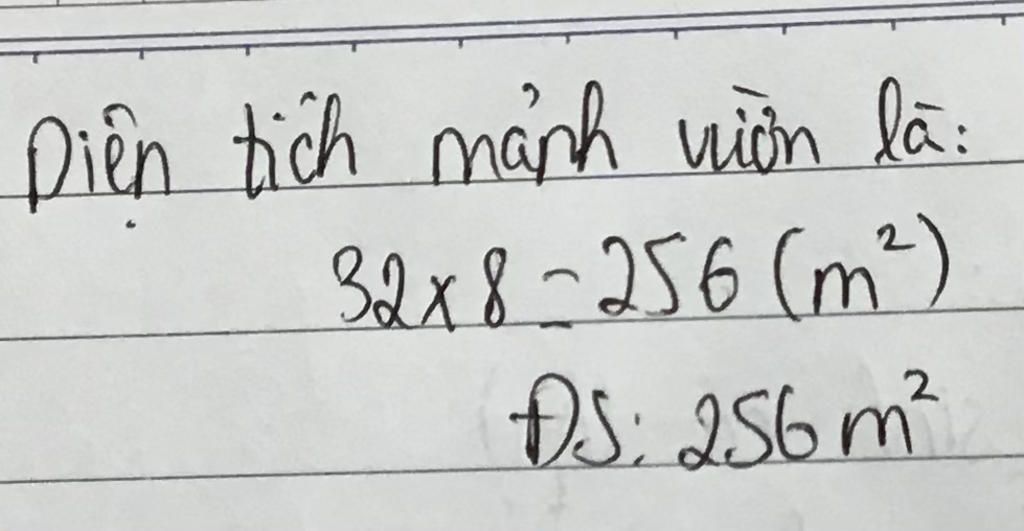 Diện tích mảnh vườn là:
32 x 8 = 256 (m²)
ĐS: 256 m²